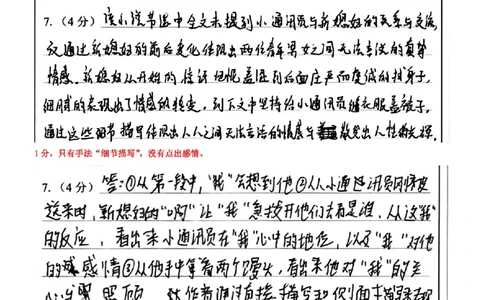 7.（4分）该小说节选中全文未提到小通讯员与新媳妇的关系与交流,
又通过新媳妇的前后变化体现出两位青年男女之间无法言说的真挚
情感。新媳妇从开始的 忸怩羞涩到后面庄严而虔诚的 拭身子,
细腻的表现出了情感的转变。到下文中坚持给小通讯员缝衣服盖被子,
通过这些细节描写体现出人与人之间无法言语的情感与散发出人性的光辉。
1分，只有手法“细节描写”，没有点出感情。
7.（4分）答:①从第一段中,“我”会想到他②从小通讯员
送来时,新媳妇的“啊”让“我”急拨开他们去看是谁,从这“我”
的反应,看出来小通讯员在“我”心中的地位,以及“我”对他
的感情③从他手中拿着两个馒头,看出来他对“我”的关
心 照顾